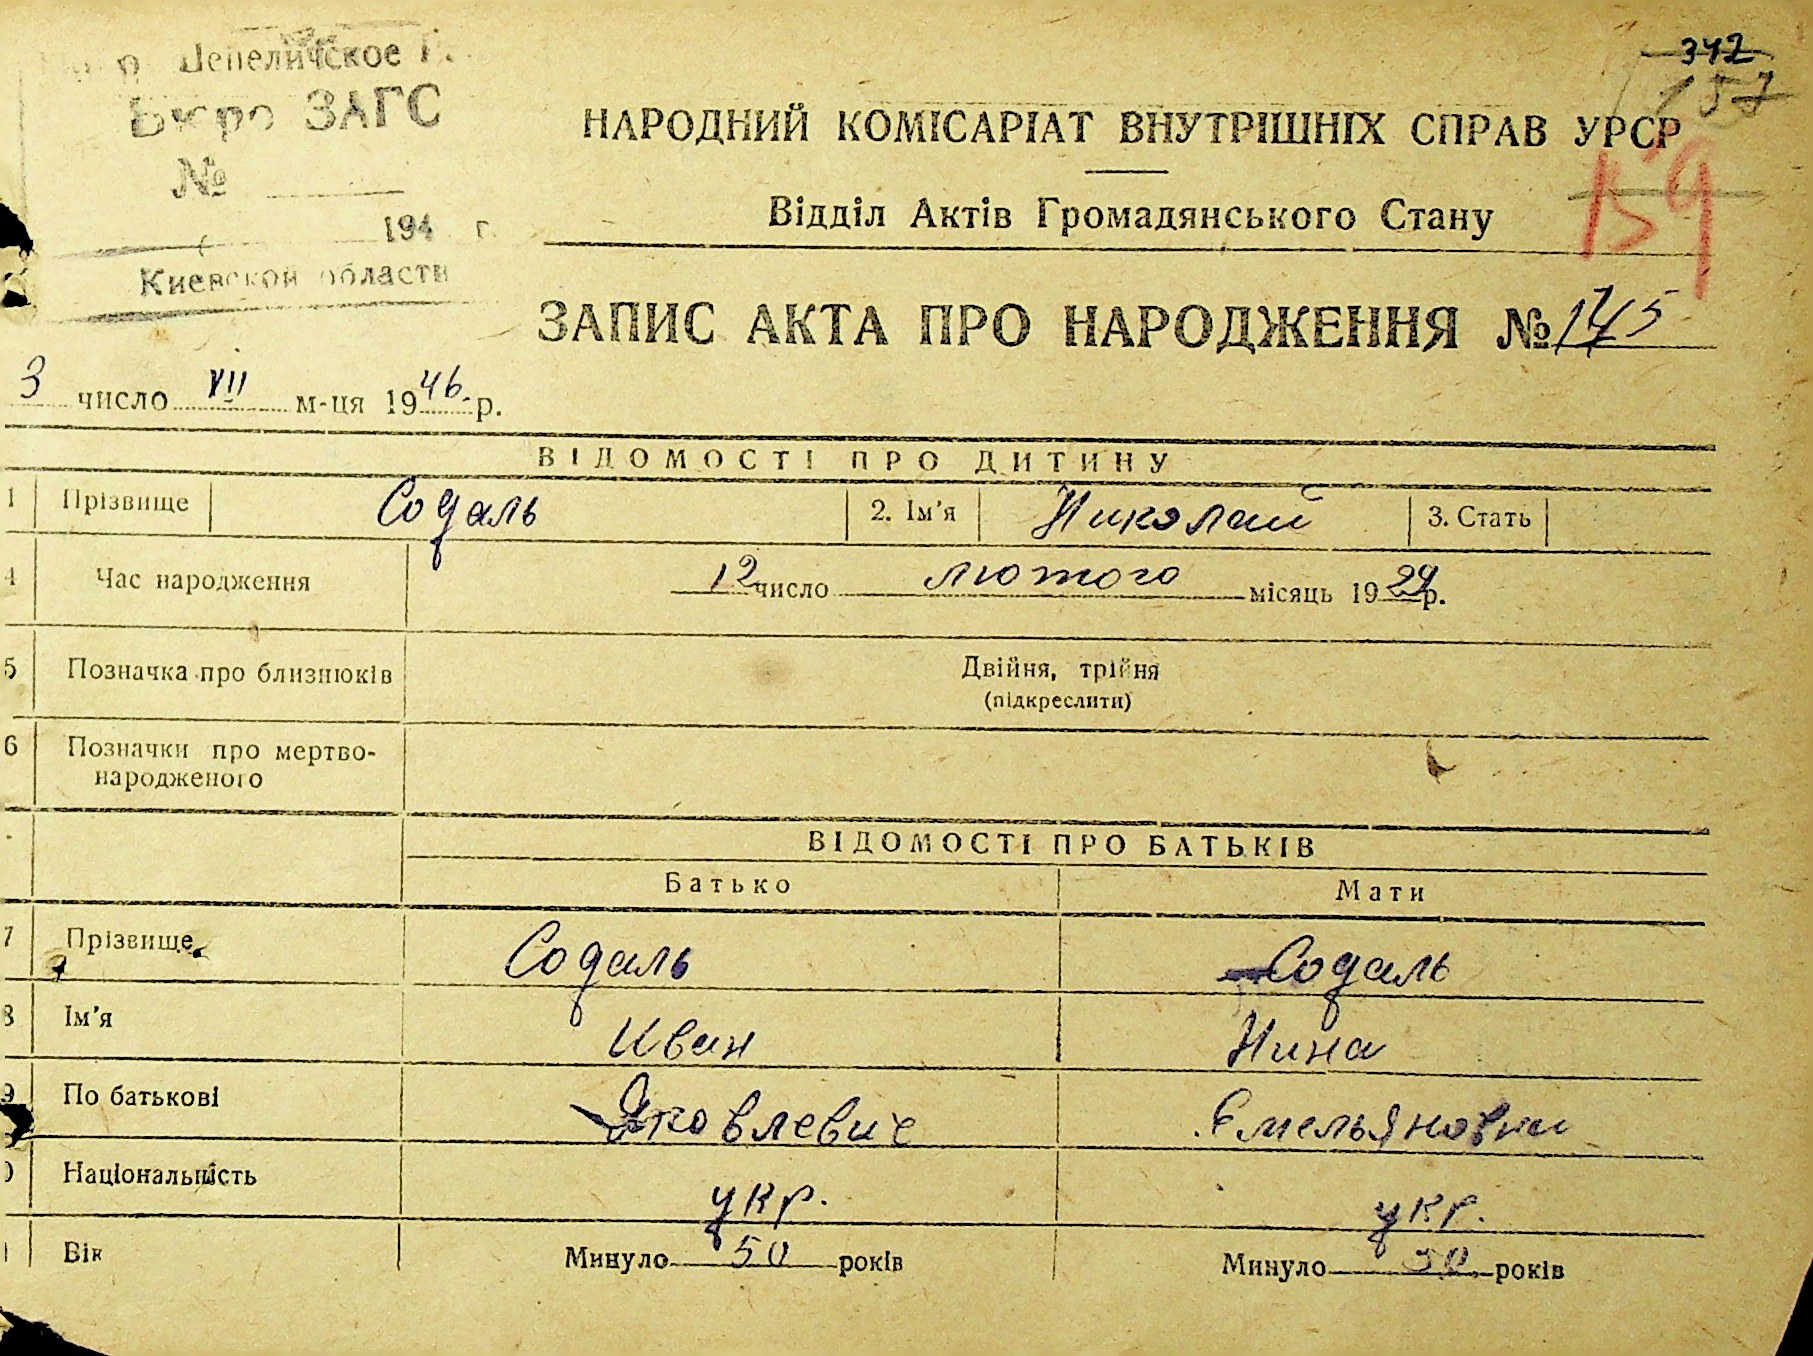 Шепеличское Р.
Бюро ЗАГС
№
194 г.
Киевской области
342
157
159
НАРОДНИЙ КОМІСАРІАТ ВНУТРІШНІХ СПРАВ УРСР
Відділ Актів Громадянського Стану
ЗАПИС АКТА ПРО НАРОДЖЕННЯ № 145
3 число VII м-ця 1946 р.
ВІДОМОСТІ ПРО ДИТИНУ
1 Прізвище Содаль 2. Ім'я Николай 3. Стать
4 Час народження 12 число лютого місяць 1929 р.
5 Позначка про близнюків Двійня, трійня
(підкреслити)
6 Позначки про мертво-
народженого
ВІДОМОСТІ ПРО БАТЬКІВ
Батько Мати
7 Прізвище Содаль Содаль
8 Ім'я Иван Нина
9 По батькові Яковлевич Емельяновна
0 Національність укр. укр.
1 Вік Минуло 50 років Минуло 50 років